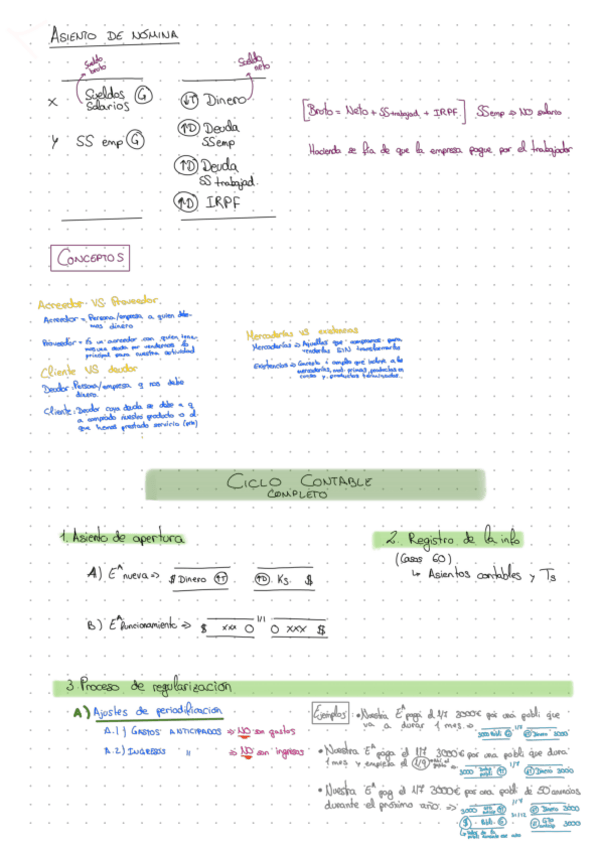 ASIENTO DE NÓMINA
Sueldo bruto
Sueldo neto
X Sueldos Salarios G
Dinero
Y SS emp G
Deuda SSemp
Deuda SS trabajad.
IRPF
[Bruto = Neto + SStrabajad + IRPF] SSemp ⇒ NO salario
Hacienda se fía de que la empresa pague por el trabajador
CONCEPTOS
Acreedor VS Proveedor
Acreedor = Persona/empresa a quien debemos dinero
Proveedor = Es un acreedor con quien
principal para nuestra actividad
Cliente VS deudor
Deudor: Persona/empresa q nos debe
dinero.
Cliente: Deudor cuya deuda se debe a q
a comprado nuestro producto o al
que hemos prestado servicio
Mercaderías VS existencias
Mercaderías ⇒ Aquellas que compramos para
venderlas SIN transformarlas
Existencias ⇒
mercaderías, mat. primas, productos en
curso y productos terminados.
CICLO CONTABLE
COMPLETO
1. Asiento de apertura
A) Eª nueva ⇒ $ Dinero Ks. $
B) Eª funcionamiento ⇒ $ xxx O 1/1 O xxx $
2. Registro de la info
(Casos 60)
↳ Asientos contables y Ts
3. Proceso de regularización
A) Ajustes de periodificación
A.1) GASTOS ANTICIPADOS ⇒ NO son gastos
A.2) INGRESOS " ⇒ NO son ingresos
Ejemplos: • Nuestra Eª paga el 1/7 3000€ por una publi que
va a durar 1 mes. ⇒ 3000 Publi G 1/7 Dinero 3000
• Nuestra Eª paga el 1/7 3000€ por una publi que dura
1 mes y empieza el 1/9 3000 1/7 Dinero 3000
• Nuestra Eª pag el 1/7 3000€ por una publi de 50 anuncios
durante el próximo año. ⇒ 3000 1/7 Dinero 3000
$ Publi G 31/12 3000